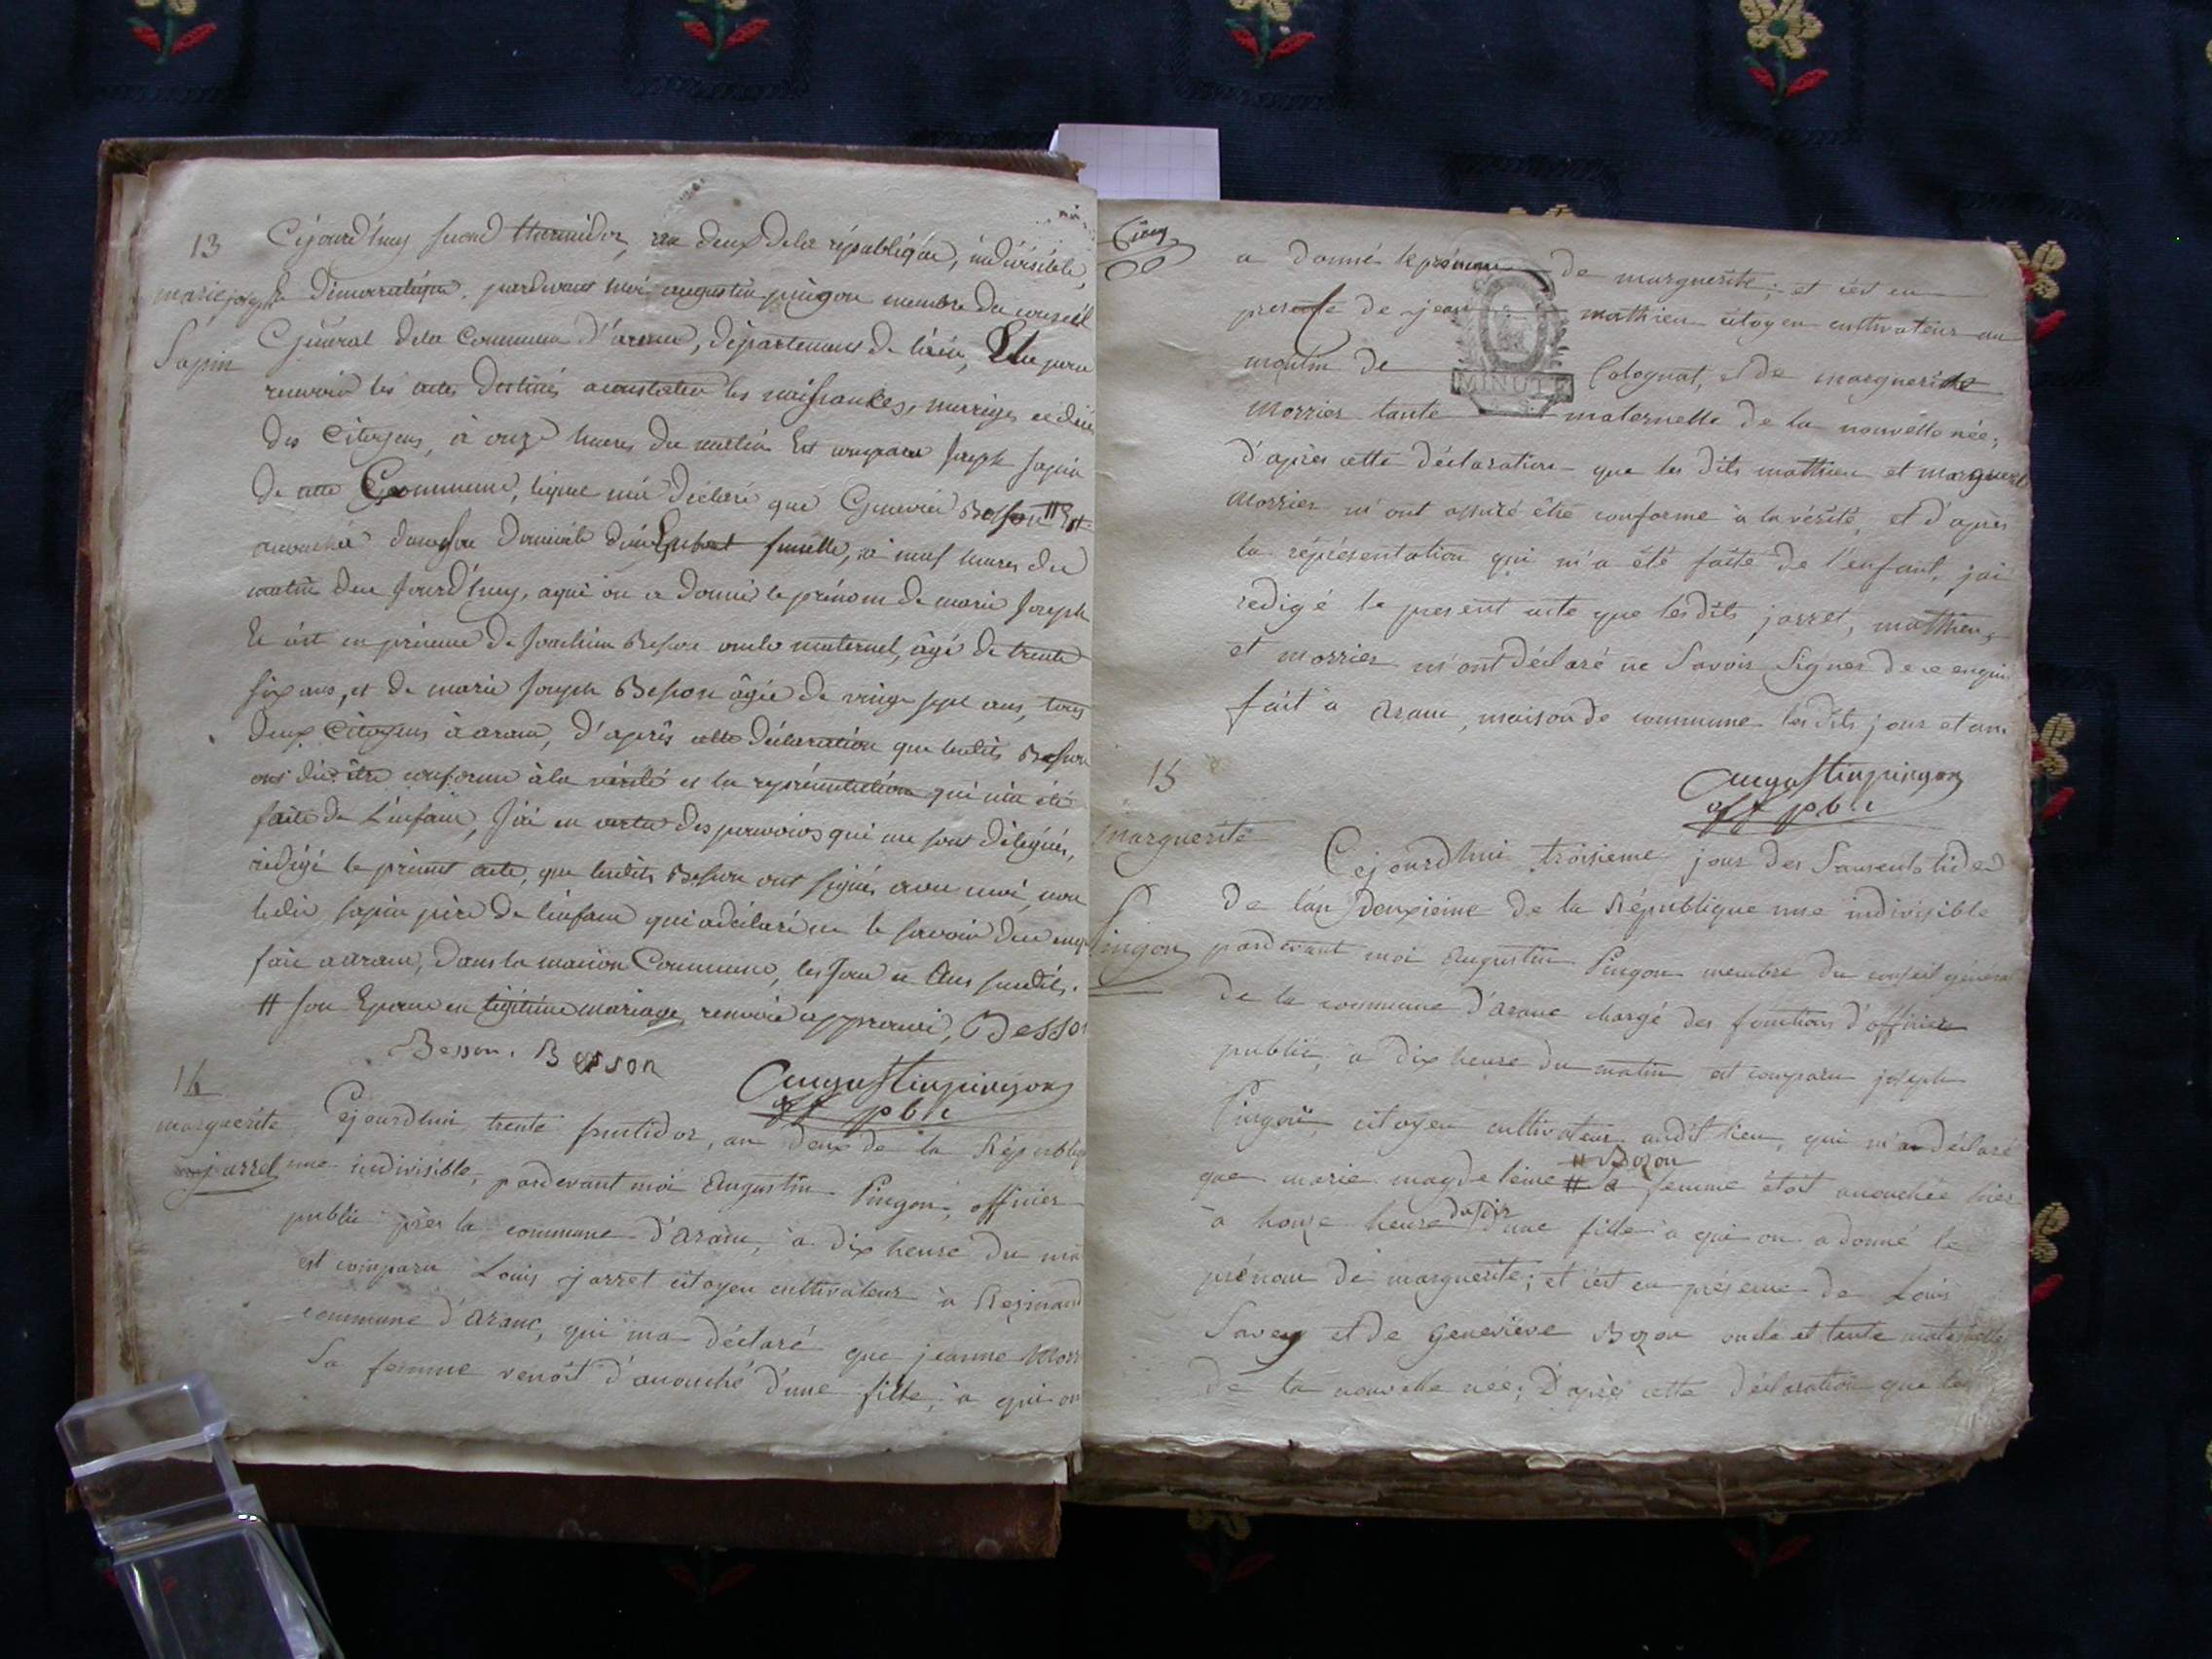 13
marie joseph
Sapin
Cejourd'huy second thermidor, an deux dela république, indivisible,
démocratique. pardevant moi augustin pingon membre du conseil
Général dela Commune d'aranc, département de l'ain, Elu pour
recevoir les actes destinés a constater les naissances, mariages et décès
des Citoyens, à onze heures du matin Est comparu Joseph Sapin
de cette Commune, lequel m'a déclaré que Genevieve Besson # Est
accouchée dans son domicile d'un Enfant femelle, à neuf heures du
matin de ce Jourd'huy, a qui on a donné le prénom de marie Joseph
Et c'est en présence de Joachim Besson oncle maternel, âgé de trente
six ans, et de marie Joseph Besson âgée de vingt sept ans, tous
deux Citoyens à aranc, d'après cette déclaration que lesdits Besson
ont dit être conforme à la vérité et la représentation qui m'a été
faite de L'enfant, J'ai en vertu des pouvoirs qui me sont délégués,
rédigé le présent acte, que lesdits Besson ont signés avec moi, non
ledit sapin père de l'enfant qui a déclaré ne le savoir de ce enquis
fait a aranc, dans la maison Commune, les Jour et Ans susdits.
# son Epouse en légitime mariage, renvoie approuvé, Besson
Besson. Besson
augustin pingon
off pblc
14
marguerite
jarret
Cejourdhui trente fructidor, an deux de la Républiq
une indivisible, pardevant moi Augustin Pingon, officier
public près la commune d'Aranc, à dix heure du ma
est comparu Louis jarret citoyen cultivateur à Resinand
commune d'aranc, qui ma déclaré que jeanne Morr
Sa femme venoit d'accouché d'une fille, à qui on
a donné le prénom de marguerite; et c'est en
presence de jean mathieu citoyen cultivateur au
MINUTE
moulin de Colognat, et de marguerite
Morrier tante maternelle de la nouvelle née;
d'après cette déclaration que les dits mathieu et marguerit
Morrier m'ont assuré être conforme à la vérité, et d'après
la représentation qui m'a été faite de l'enfant, jai
redigé le present acte que lesdits jarret, mathieu,
et morrier m'ont déclaré ne Savoir Signer de ce enquis
fait à Aranc, maison de commune les dits jour et an.
augustin pingon
off pblc
15
Marguerite
Pingon
Cejourdhui troisieme jour des Sansculotides
De l'an Deuxieme de la République une indivisible
pardevant moi Augustin Pingon membre du conseil général
de la commune d'aranc chargé des fonctions d'officier
public, à dix heure du matin est comparu joseph
Pingon, citoyen cultivateur audit lieu, qui m'a déclaré
# Bozon
que marie magdeleine # sa femme étoit accouchée hier
à honze heure du soir d'une fille à qui on a donné le
prénom de marguerite; et c'est en présence de Louis
Savey et de Genevieve Bozon oncle et tante maternelle
de la nouvelle née; D'après cette déclaration que les